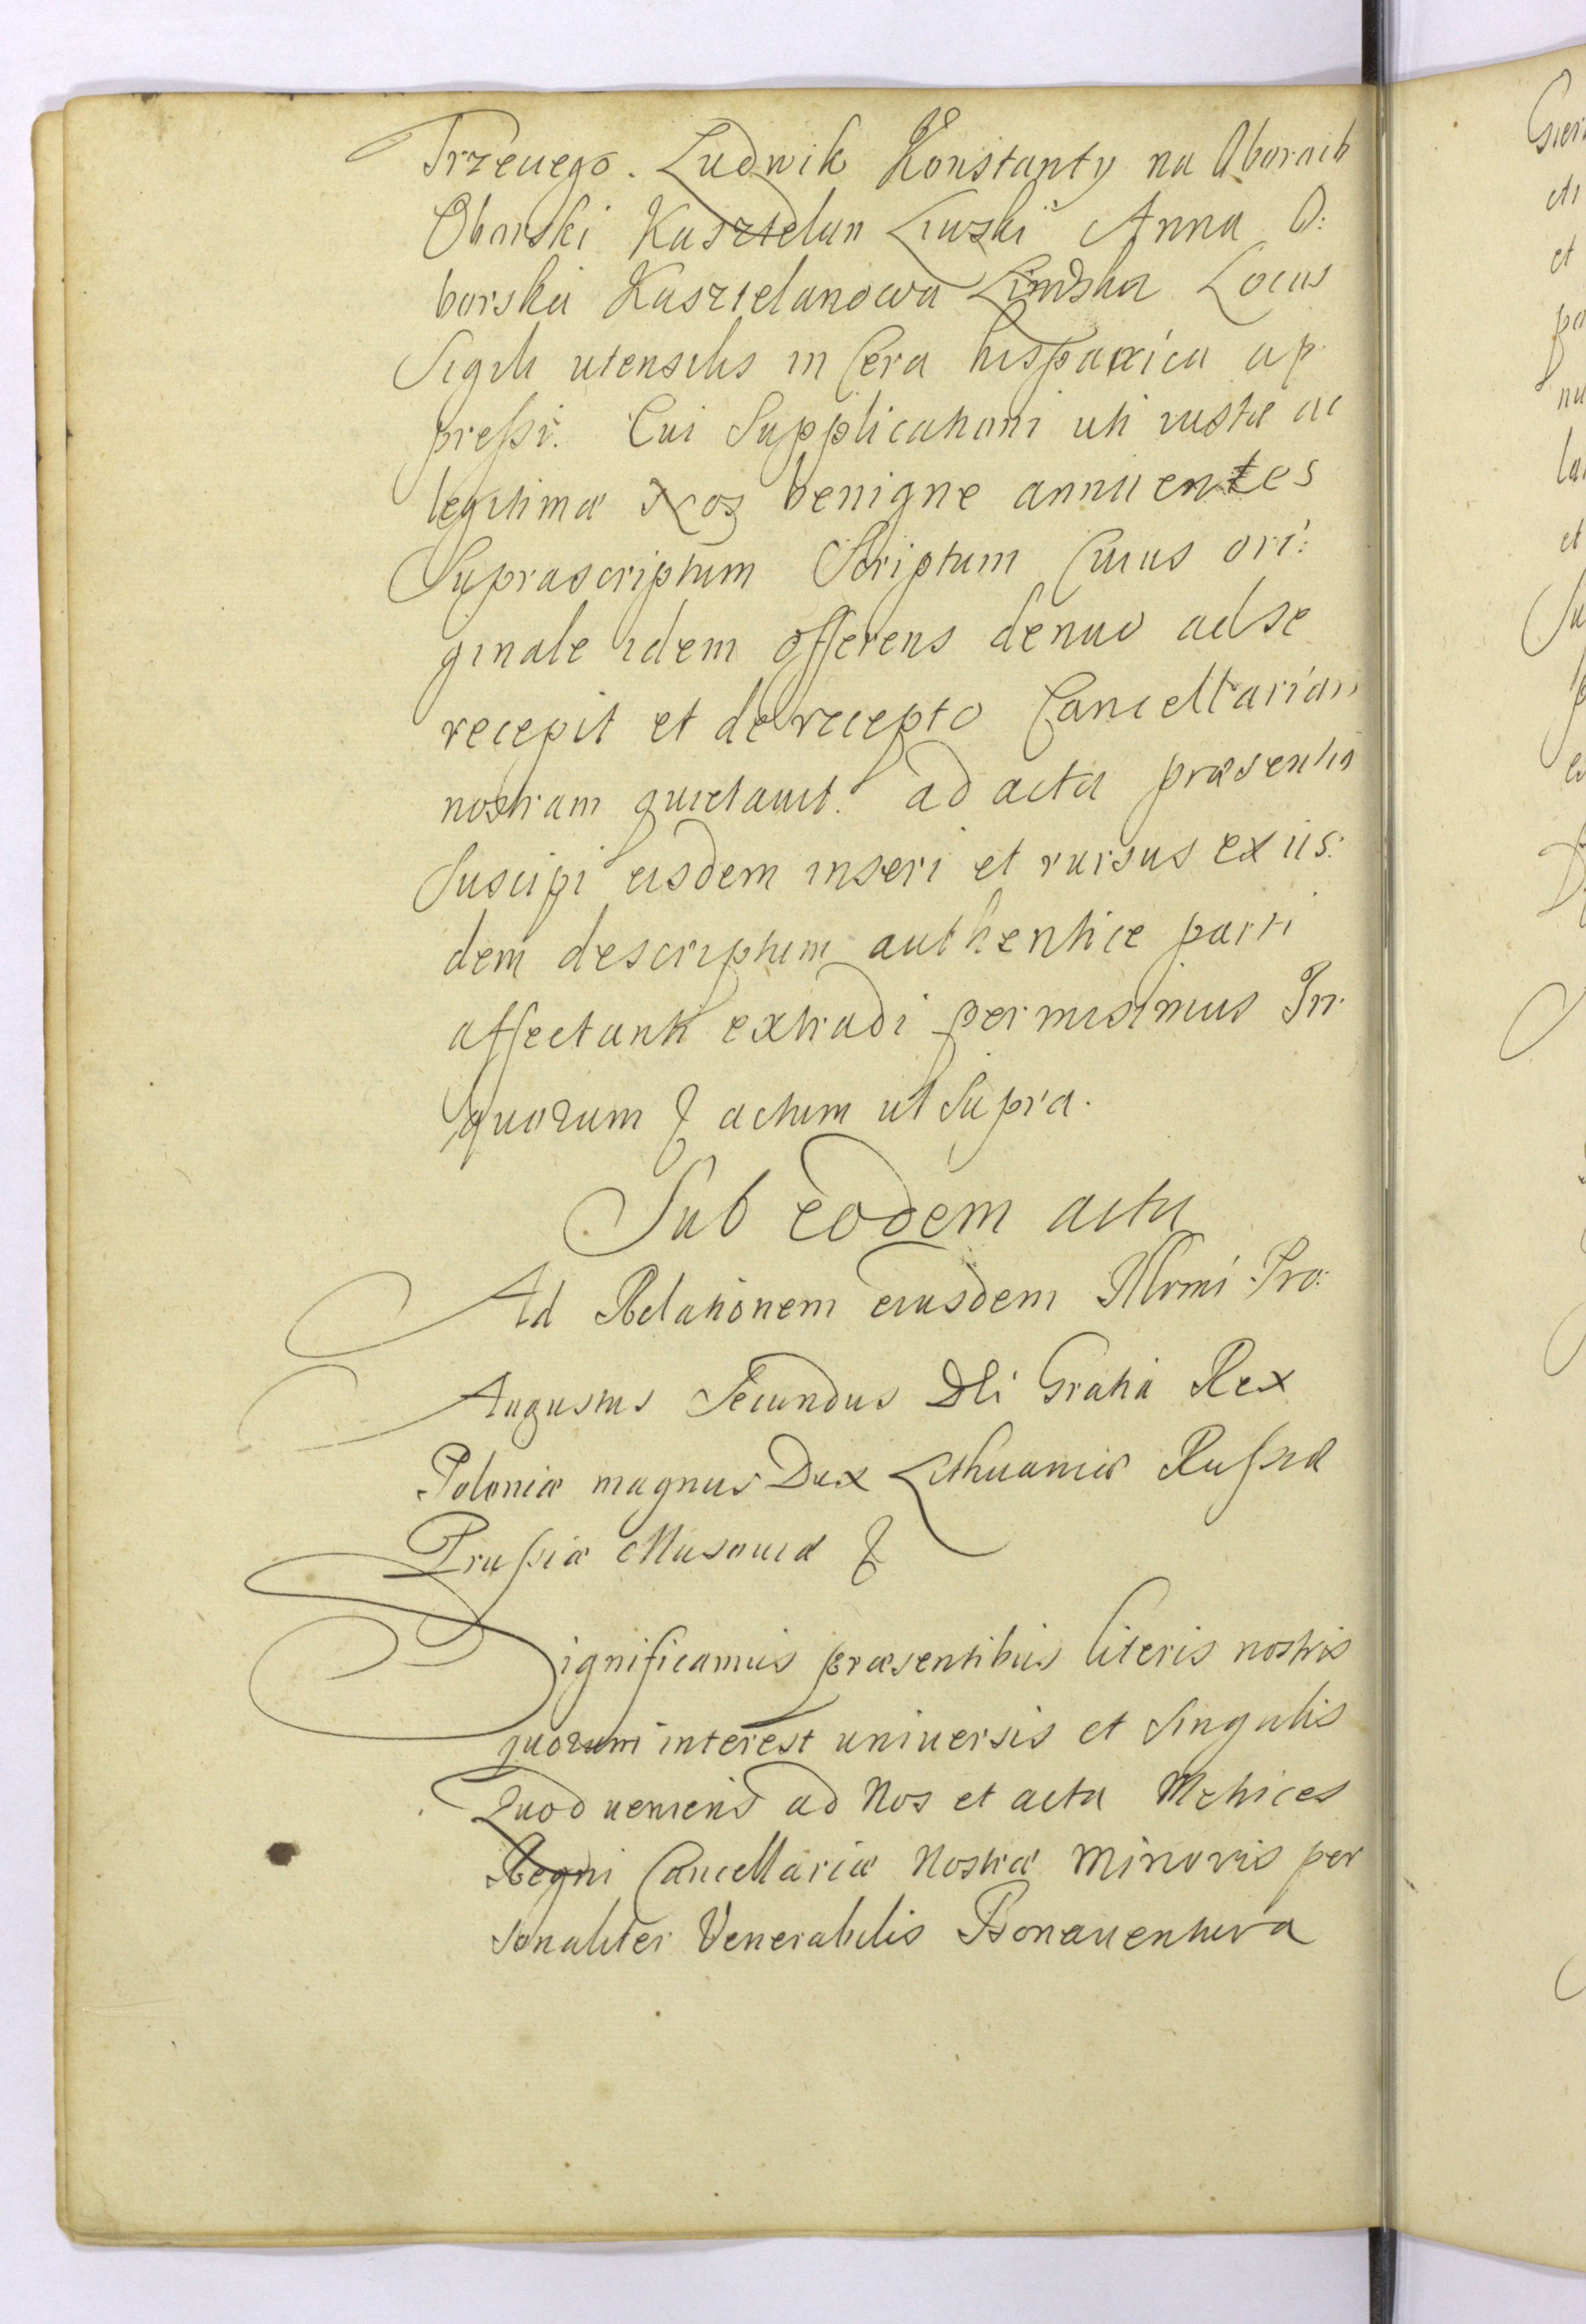 Trzeciego. Ludwik Konstanty na Oborach
Oborski Kasztelan Liwski Anna O:
borska Kasztelanowa Liwska Locus
Sigili utensilis in Cera hispanica ap
preſsi. Cui Supplicationi uti iustæ ac
legitimæ Nos benigne annuentes
Suprascriptum Scriptum Cuius ori:
ginale idem offerens denuo ad se
recepit et de recepto Cancellariam
nostram quietauit. ad acta præsentia
Suscipi eisdem inseri et rursus ex iis:
dem descriptum authentice parti
affectanti extradi permisimus In
quorum & actum ut Supra.
Sub eodem actu
Ad Relationem eiusdem Illrmi Pro:
Augustus Secundus Dei Gratia Rex
Poloniæ magnus Dux Lithuaniæ Ruſsiæ
Pruſsiæ Masouiæ &
Significamus præsentibus literis nostris
quorum interest uniuersis et Singulis
Quod ueniens ad Nos et acta Metrices
Regni Cancellariæ Nostræ minoris per
sonaliter Venerabilis Bonauentura